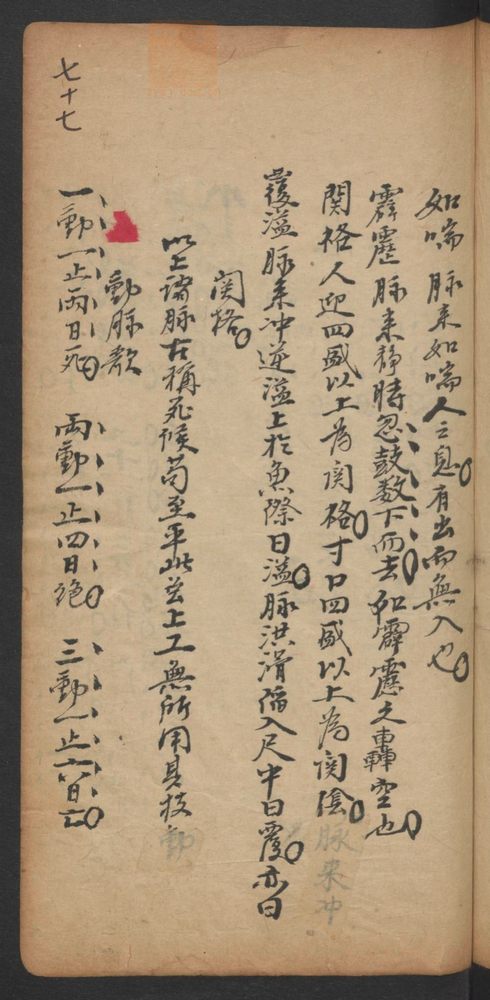 如喘 脉来如喘人之息有出而無入也
霹靂 脉来静時忽鼓数下而去如霹靂之轟空也
関格 人迎四盛以上為関格寸口四盛以上為関陰脉来冲
覆溢 脉来冲逆溢上於魚際曰溢脉洪滑偏入尺中曰覆亦曰
関格
以上諸脉古稱死候苟至乎此並上工無所用其技
動脉歌
一動一止両日死 両動一止四日绝 三動一止六日亡
七十七